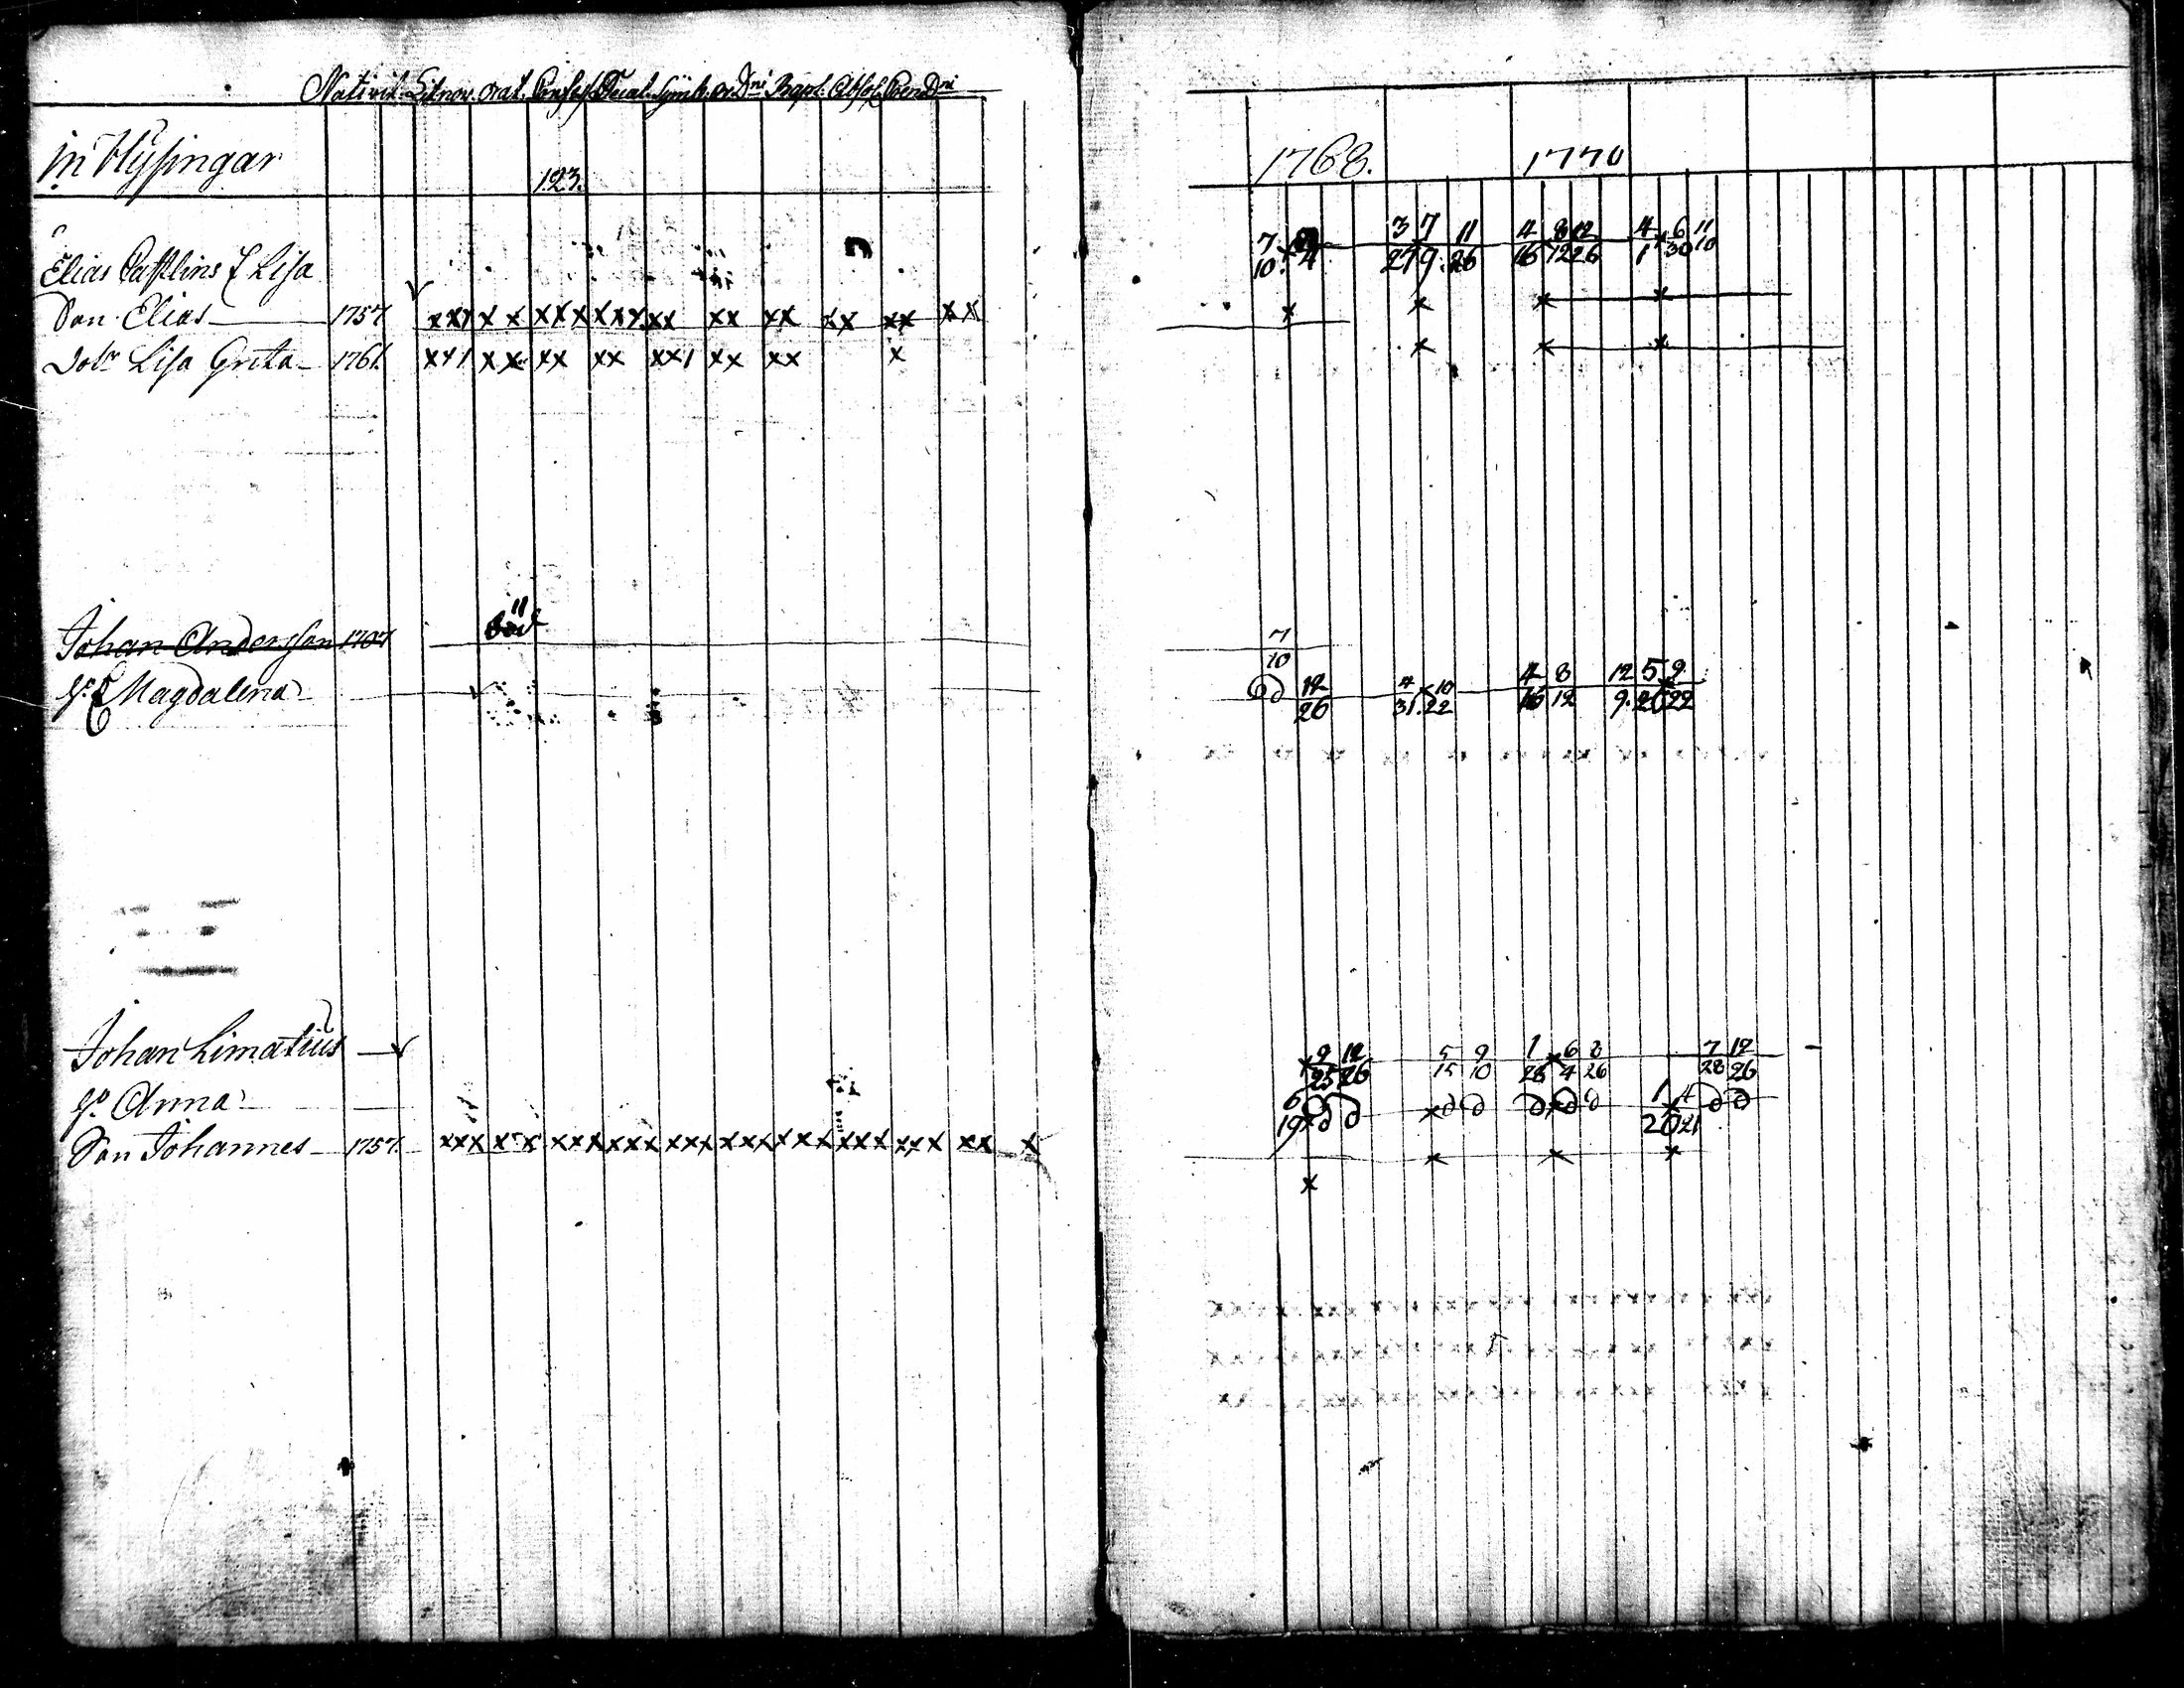 Nativit. Litnov. Orat. Confess. Decal. Symb. or. Dni Bapt. Absol. Coen Dni
in Hysingar 123.
1768. 1770
7 3 7 11 4 8 12 4 6 11
Elias & Lisa
10 4 27 9 26 16 12 26 1 30 10
Son Elias 1757 xxx x x xxx xxx xx xx xx xx xx xx x x x x
Dotr Lisa Greta 1761. xx1 xx xx xx xx1 xx xx x x x x
död
Johan Andersson 1707 7
10
Magdalena 12 4 10 4 8 12 5 9
26 31 22 16 12 9 20 22
Johan Limatius x 9 12 5 9 1 x 6 8 7 12
25 26 15 10 28 4 26 28 26
Anna 6 x x 1 4
19 20 21
Son Johannes 1757. xxx x x xxx xxx xxx xxx xxx xxx xxx xx x x x x
x